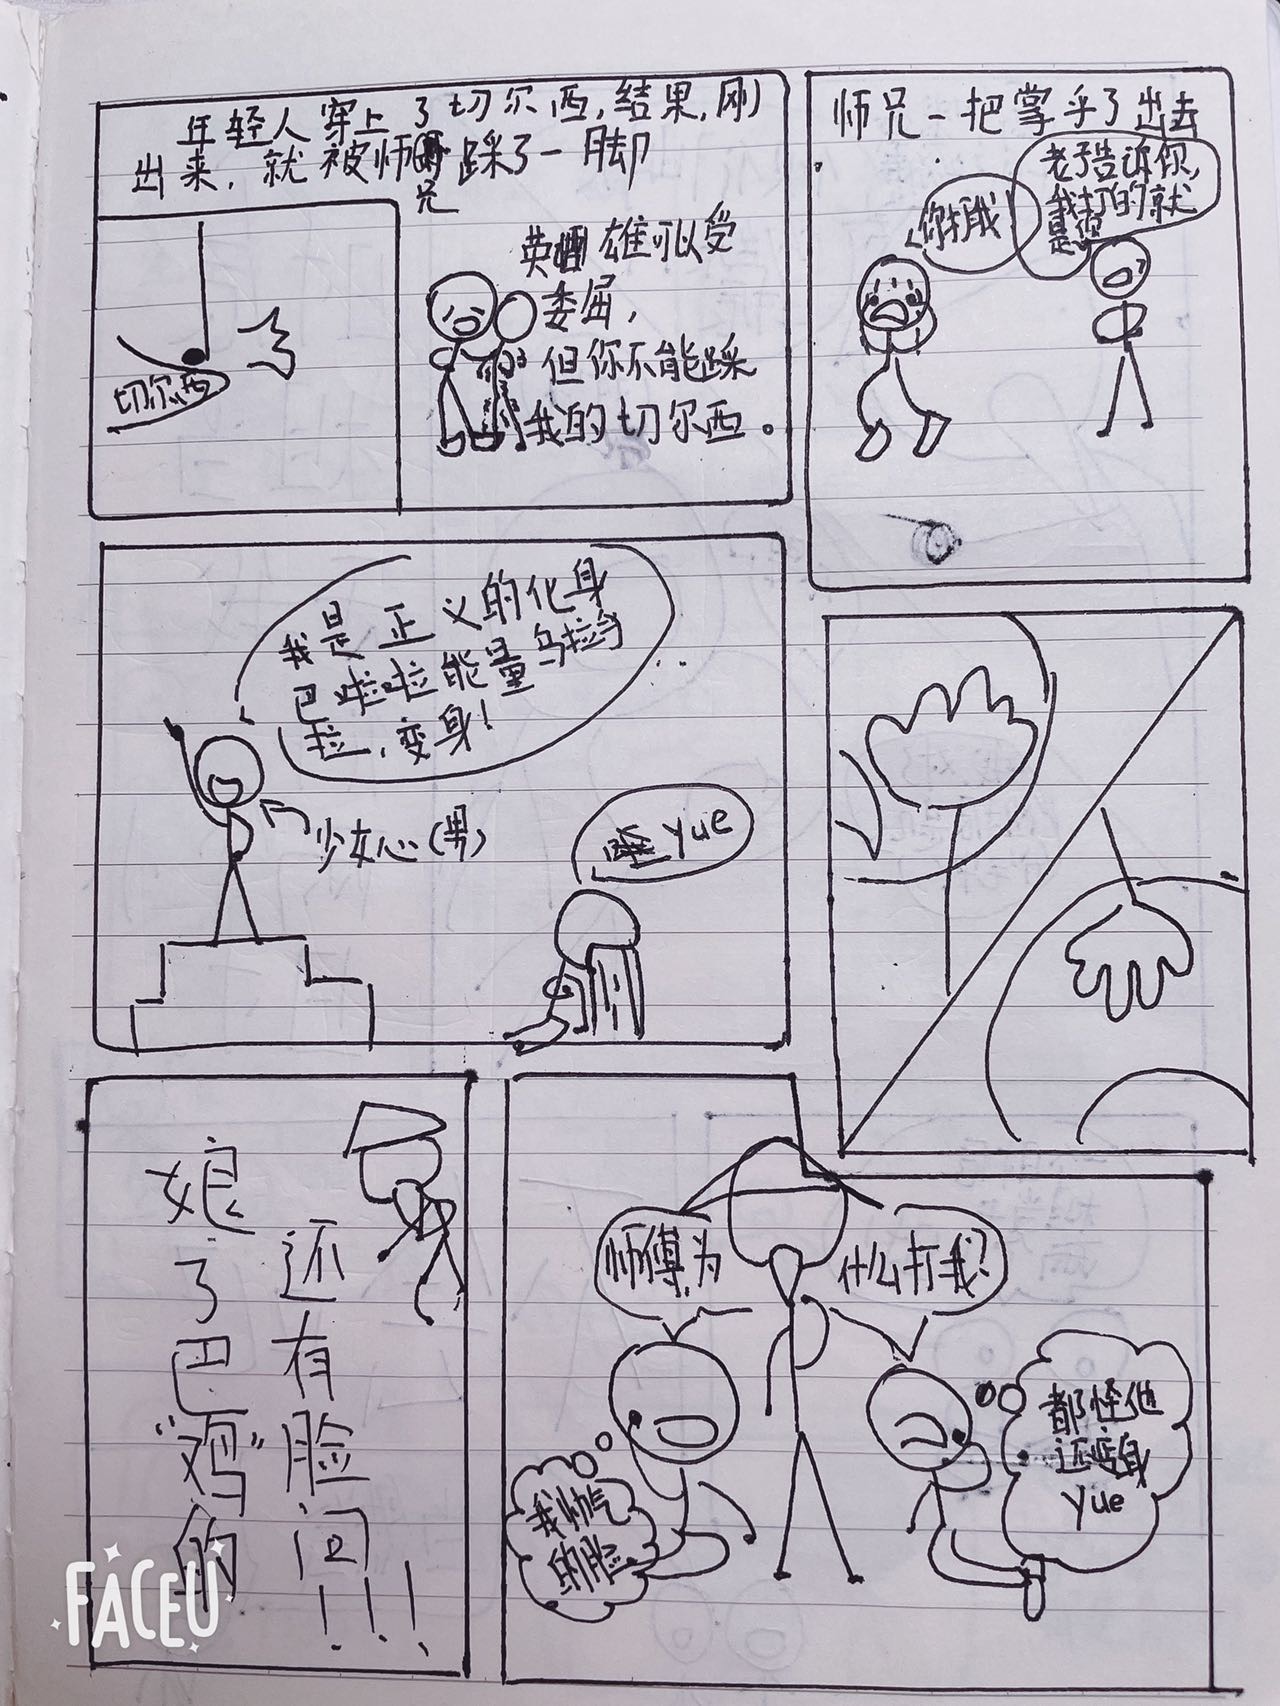 年轻人穿上了切尔西,结果,刚
出来,就被师兄踩了一脚
切尔西
英雄可以受
委屈,
但你不能踩
我的切尔西。
师兄一把掌乎了出去
你打我
老子告诉你,
我打的就
是你
我是正义的化身
巴啦啦能量乌拉
拉,变身!
少女心(男)
yue
娘了巴“鸡”的
还有脸问!!!
师傅为
什么打我?
我帅气
的脸
都怪他
还变身
yue
FACEU